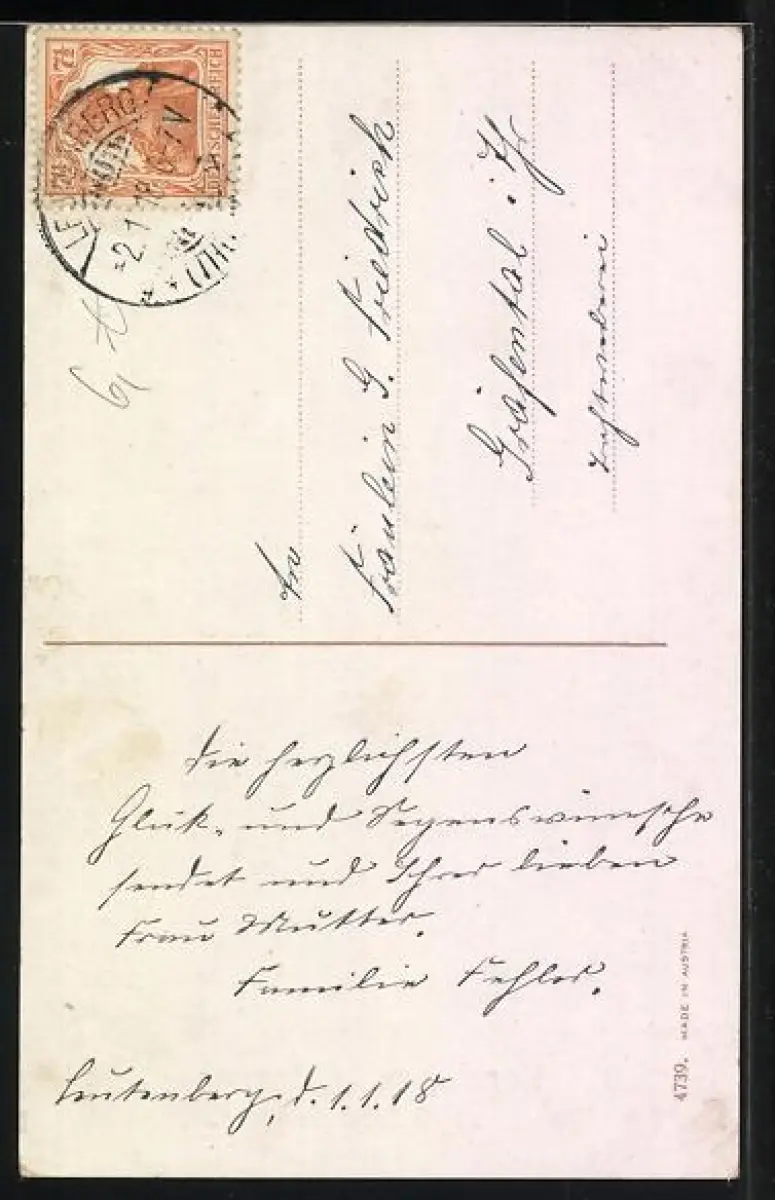 7½
DEUTSCHES REICH
7½
LEUTENBERG
-2.1.18. 6-7V
(THÜR.)
An
Fräulein G. Friedrich
Gräfental i. Th
Die herzlichsten
Glück- und Segenswünsche
sendet und Ihrer lieben
Frau Mutter.
Familie Fehler.
Leutenberg, d. 1.1.18
4739. MADE IN AUSTRIA